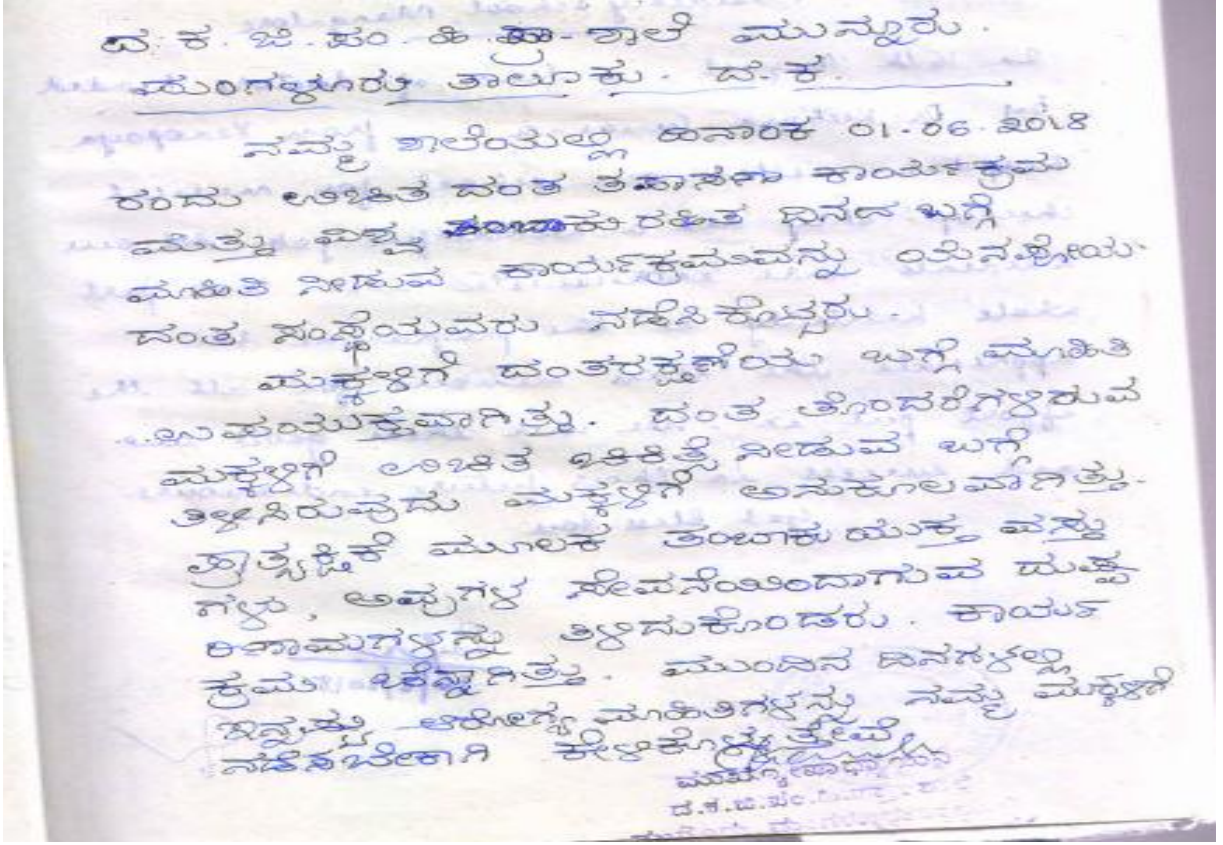 ದ.ಕ.ಜಿ.ಪಂ.ಹಿ.ಪ್ರಾ.ಶಾಲೆ ಮುನ್ನೂರು.
ಮಂಗಳೂರು ತಾಲೂಕು. ದ.ಕ.
ನಮ್ಮ ಶಾಲೆಯಲ್ಲಿ ದಿನಾಂಕ 01-06-2018
ರಂದು ಉಚಿತ ದಂತ ತಪಾಸಣಾ ಕಾರ್ಯಕ್ರಮ
ಮತ್ತು ವಿಶ್ವ ತಂಬಾಕು ರಹಿತ ದಿನದ ಬಗ್ಗೆ
ಮಾಹಿತಿ ನೀಡುವ ಕಾರ್ಯಕ್ರಮವನ್ನು ಯೆನಪೋಯ
ದಂತ ಸಂಸ್ಥೆಯವರು ನಡೆಸಿಕೊಟ್ಟರು.
ಮಕ್ಕಳಿಗೆ ದಂತರಕ್ಷಣೆಯ ಬಗ್ಗೆ ಮಾಹಿತಿ
ಉಪಯುಕ್ತವಾಗಿತ್ತು. ದಂತ ತೊಂದರೆಗಳಿರುವ
ಮಕ್ಕಳಿಗೆ ಉಚಿತ ಚಿಕಿತ್ಸೆ ನೀಡುವ ಬಗ್ಗೆ
ತಿಳಿಸಿರುವುದು ಮಕ್ಕಳಿಗೆ ಅನುಕೂಲವಾಗಿತ್ತು.
ಪ್ರಾತ್ಯಕ್ಷಿಕೆ ಮೂಲಕ ತಂಬಾಕುಯುಕ್ತ ವಸ್ತು
ಗಳು, ಅವುಗಳ ಸೇವನೆಯಿಂದಾಗುವ ದುಷ್ಪ
ರಿಣಾಮಗಳನ್ನು ತಿಳಿದುಕೊಂಡರು. ಕಾರ್ಯ
ಕ್ರಮ ಚೆನ್ನಾಗಿತ್ತು. ಮುಂದಿನ ದಿನಗಳಲ್ಲಿ
ಇನ್ನಷ್ಟು ಆರೋಗ್ಯ ಮಾಹಿತಿಗಳನ್ನು ನಮ್ಮ ಮಕ್ಕಳಿಗೆ
ನಡೆಸಬೇಕಾಗಿ ಕೇಳಿಕೊಳ್ಳುತ್ತೇವೆ.
ಮುಖ್ಯೋಪಾಧ್ಯಾಯಿನಿ
ದ.ಕ.ಜಿ.ಪಂ.